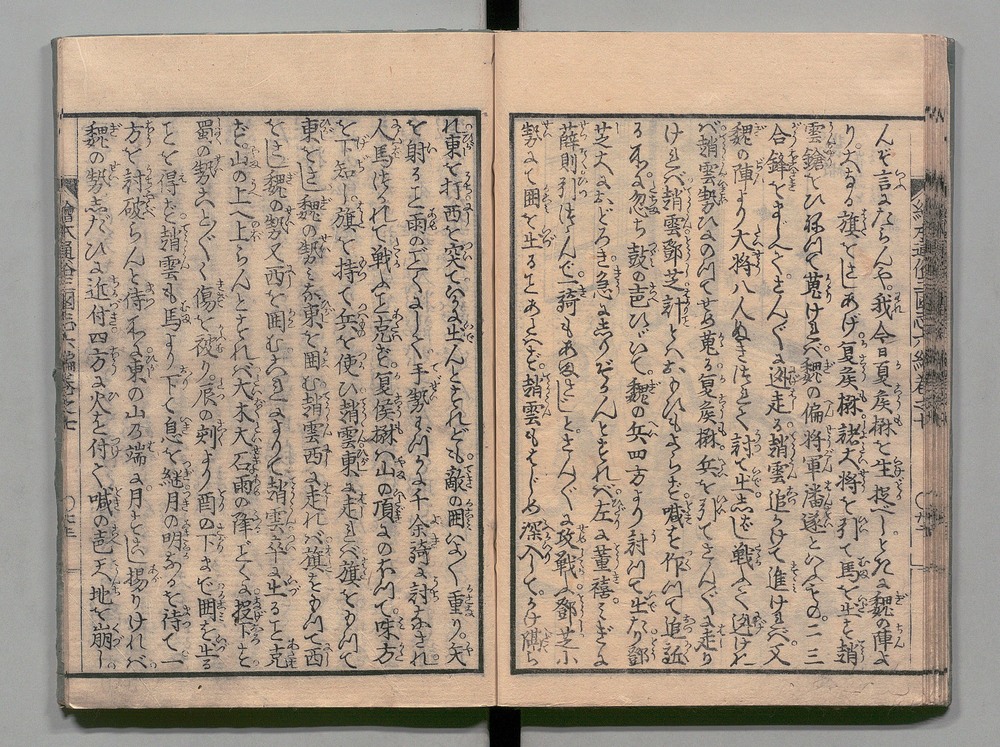 んぞ言にたらんや。我今日夏侯楙を生捉べしとれに魏の陣よ
り。大なる旗をさしあげ夏侯楙諸大将を引て馬を出を趙
雲鎗をひねつて蒐ければ魏の偏将軍潘遂といふもの。二三
合鋒をましへてさんぐに迯走る趙雲追かけて進ければ。又
魏の陣より大将八人ぬきつれて討て出しばし戦ふて迯けれ
ば趙雲勢ひにのつてせめ蒐る夏侯楙兵を引てさんぐに走り
ければ趙雲鄧芝計とハおもひもよらず喊を作つて追近
る所に。忽ち鼓の声ひゞいて。魏の兵四方より討つて出たり鄧
芝大におどろき急にしりぞかんとすれば左は董禧みぎは
薛則引つゝんで一騎もあますなとさんぐに攻戦ふ鄧芝小
勢にて囲を出ることあたハず。趙雲もはじめ深入して。かけ隔ら
れ東に打西を突て。かけ出んとすれども敵の囲いよく重り。矢
を射ること雨のごとくにして手勢わづか千余騎に討なされ
人馬つかれて戦ふこと克ず。夏侯楙ハ山の頂にのぼつて味方
を下知し。旗を持て兵を使ひ趙雲東に走れバ旗をもつて
東をさし魏の勢ミな東を囲む趙雲西に走れバ旗をもつて西
をさし魏の勢又西を囲むこれによりて趙雲卒に出ること克
ず。山の上へ上らんとすれバ大木大石雨の降ごとくに投下こ
蜀の勢ことぐく傷を被り。辰の刻より酉の下まで囲を出る
ことを得ず。趙雲も馬より下て息を継月の明なるを待て一
方を討破らんと待ゐたるに東の山乃端に月すこし揚りければ
魏の勢したひに近付四方に火を付て。喊の声天地を崩し
繪本通俗三國志六編卷之七
繪本通俗三國志六編卷之七